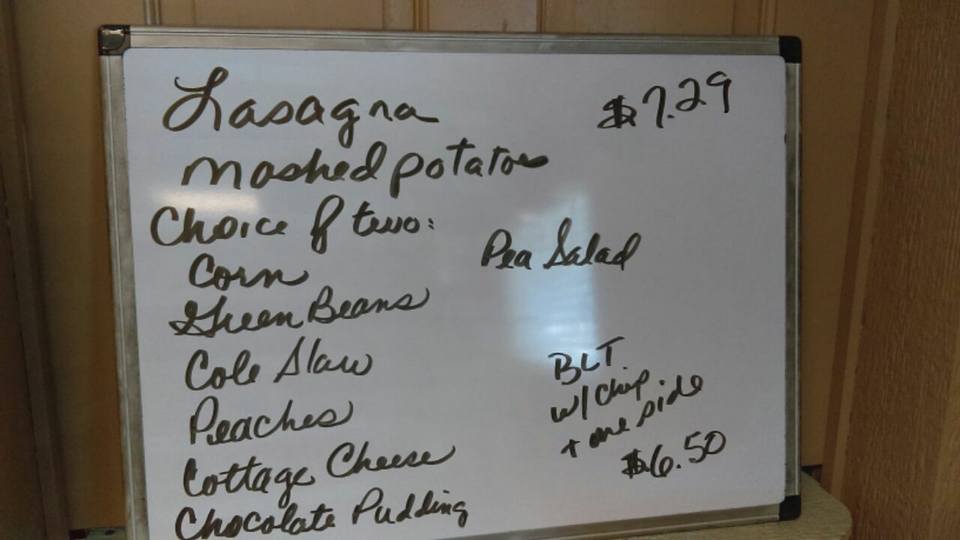 Lasagna $7.29
mashed potatoes
Choice of two:
Corn Pea Salad
Green Beans
Cole Slaw
Peaches
Cottage Cheese
Chocolate Pudding
BLT
w/chip
+ one side
$6.50